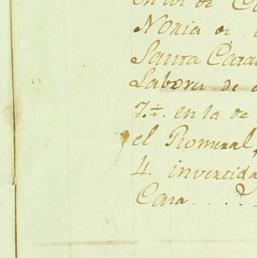 en la de Ca
Noria de
Santa Cara
Labores de
7½ en la de
el Romeral,
4. invercida
Cara